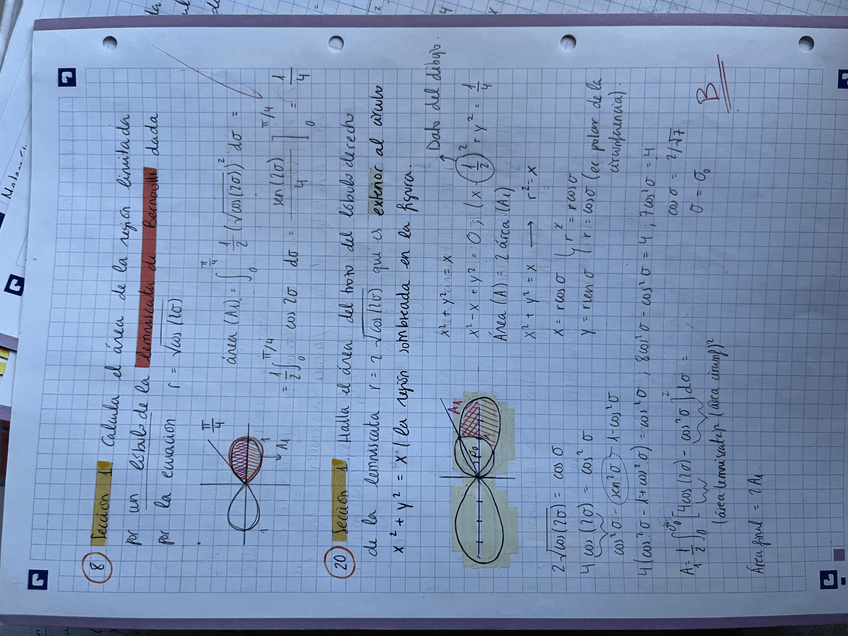 8 Sección 1. Calcula el área de la región limitada
por un lóbulo de la lemniscata de Bernoulli dada
por la ecuación r = √cos(2σ)
π/4
1
1
A1
área (A1) = ∫₀^{π/4} 1/2 (√cos(2σ))² dσ =
= 1/2 ∫₀^{π/4} cos 2σ dσ = sen(2σ)/4 ]₀^{π/4} = 1/4
20 Sección 1. Halla el área del trozo del lóbulo derecho
de la lemniscata r = 2√cos(2σ) que es exterior al círculo
x² + y² = x (la región sombreada en la figura.
A1
x² + y² = x Dato del dibujo
x² - x + y² = 0, (x - 1/2)² + y² = 1/4
Área (A) = 2 área (A1)
x² + y² = x → r² = x
x = r cos σ { r² = r cos σ
y = r sen σ { r = cos σ (ec polar de la circunferencia).
2√cos(2σ) = cos σ
4 cos(2σ) = cos² σ
cos² σ - sen² σ 1-cos² σ
4(cos² σ - 1 + cos² σ) = cos² σ, 8cos² σ - cos² σ = 4, 7cos² σ = 4
cos σ = 2/√7
σ = σ₀
A₁ = 1/2 ∫₀^{σ₀} [4cos(2σ) - cos² σ] dσ =
(área lemniscata)² (área circunf)²
Área final = 2A₁
B